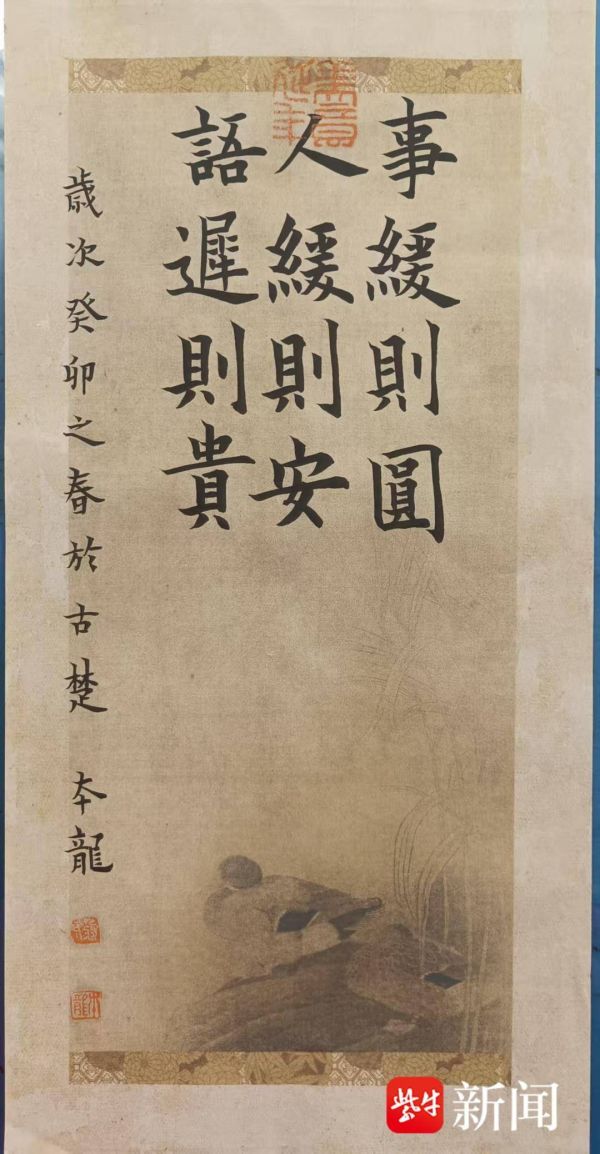 事緩則圓
人緩則安
語遲則貴
歲次癸卯之春於古楚 本龍
本龍
紫牛新闻